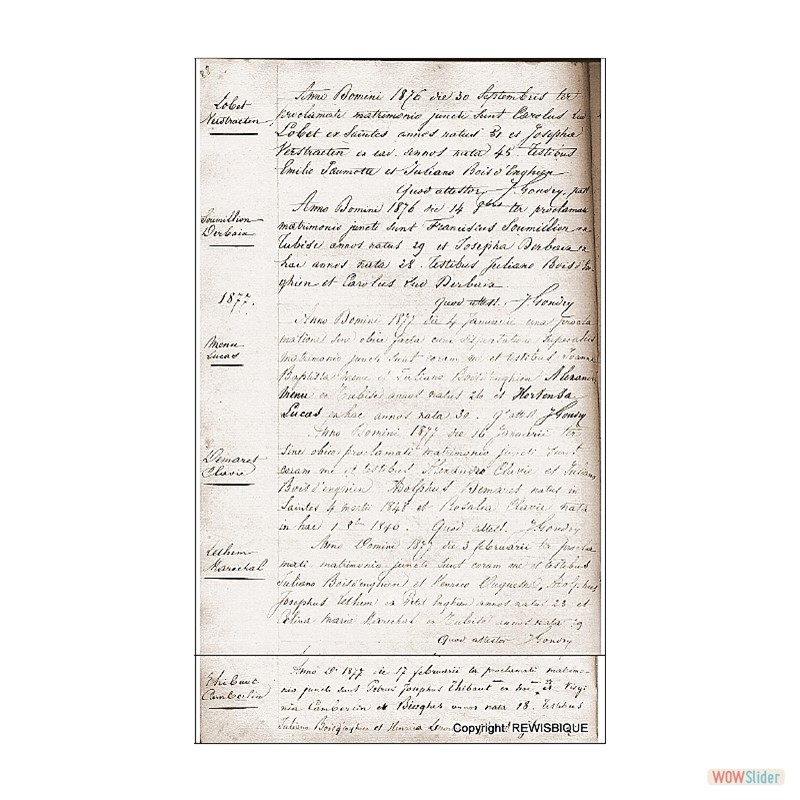 Lobet
Verstraeten
Anno Domini 1876 die 30 Septembris ter
proclamati matrimonio juncti sunt Carolus Lud
Lobet ex Saintes annos natus 31 et Josepha
Verstraeten ex ead. annos nata 45. Testibus
Emilio Paumotte et Juliano Bois d'Enghien
Quod attestor J. Gondry, past
Soumillion
Derbaix
Anno Domini 1876 die 14 9bris ter proclamati
matrimonio juncti sunt Franciscus Soumillion ex
Tubise annos natus 29 et Josepha Derbaix ex
hac annos nata 28. Testibus Juliano Bois d'En
ghien et Carolus Lud Derbaix
Quod attest. J. Gondry
1877.
Menu
Lucas
Anno Domini 1877 die 4 Januarii una procla
matione sine obice facta cum dispensatione super aliis
matrimonio juncti sunt coram me et testibus Joanne
Baptista Menu et Juliano Boisd'enghien Alexander
Menu ex Tubise annos natus 26 et Hortensia
Lucas ex hac annos nata 30. Q. attest J Gondry
Demaret
Clavie
Anno Domini 1877 die 16 Januarii ter
sine obice proclamati matrimonio juncti sunt
coram me et testibus Alexandro Clavie et Juliano
Bois d'enghien Adolphus Demaret natus in
Saintes 4 martii 1848 et Rosalia Clavie nata
in hac 1 8bris 1840. Quod attest. J. Gondry
Lethem
Marechal
Anno Domini 1877 die 3 februarii ter procla
mati matrimonio juncti sunt coram me et testibus
Juliano Boisd'enghien et Henrico Duquesne, Adolphus
Josephus Lethem ex Petit Enghien annos natus 23 et
Celina Maria Marechal ex Tubise annos nata 29
Quod attestor J Gondry
Thibaut
Cambertin
Anno D. 1877 die 17 februarii ter proclamati matrimo-
nio juncti sunt Petrus Josephus Thibaut ex hac 23 Virgi
nia Cambertin ex Bierghes annos nata 18. Testibus
Juliano Boisd'enghien et Henrico
Copyright: REWISBIQUE
WOWSlider